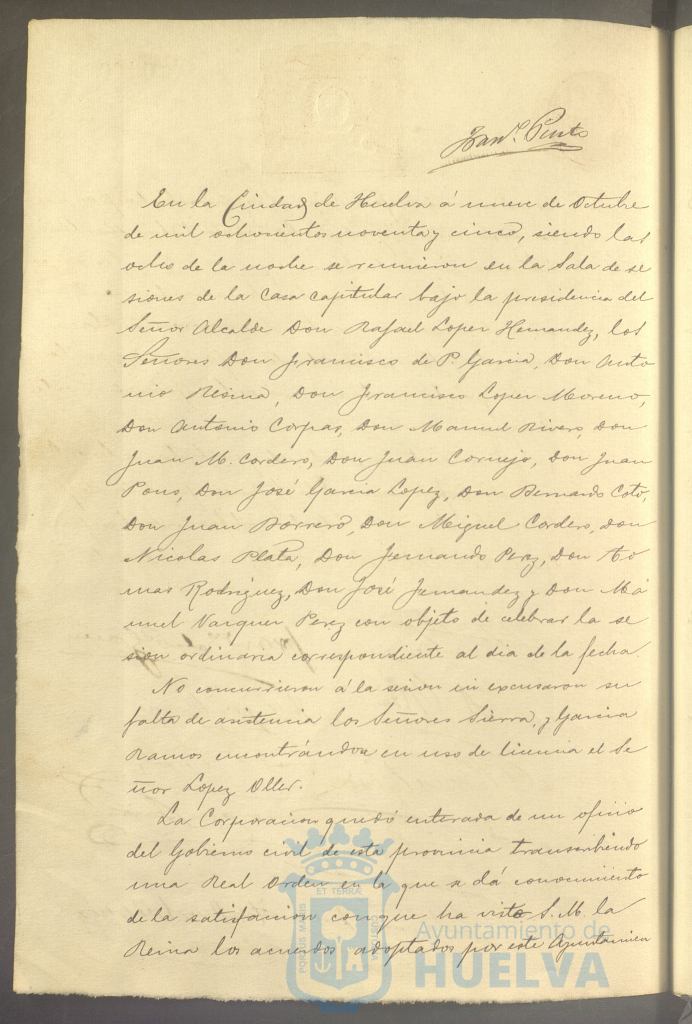 Fran.º Pinto
En la Ciudad de Huelva á nueve de Octubre
de mil ochocientos noventa y cinco, siendo las
ocho de la noche se reunieron en la Sala de se
siones de la Casa capitular bajo la presidencia del
Señor Alcalde Don Rafael Lopez Hernandez, los
Señores Don Francisco de P. Garcia, Don Anto
nio Resina, Don Francisco Lopez Moreno,
Don Antonio Corpas, Don Manuel Rivero, Don
Juan M. Cordero, Don Juan Cornejo, Don Juan
Pons, Don José Garcia Lopez, Don Bernardo Coto,
Don Juan Borrero, Don Miguel Cordero, Don
Nicolas Plata, Don Fernando Perez, Don To
mas Rodriguez, Don José Fernandez y Don Ma
nuel Vazquez Perez con objeto de celebrar la se
sion ordinaria correspondiente al dia de la fecha.
No concurrieron á la sesion ni excusaron su
falta de asistencia los Señores Sierra, y Garcia
Ramos encontrándose en uso de licencia el Se
ñor Lopez Oller.
La Corporacion quedó enterada de un oficio
del Gobierno civil de esta provincia transcribiendo
una Real Orden en la que se dá conocimiento
de la satisfacion con que ha visto S. M. la
Reina los acuerdos adoptados por este Ayuntamien
PORTUS MARIS
ET TERRÆ
CUSTODIA
Ayuntamiento de
HUELVA